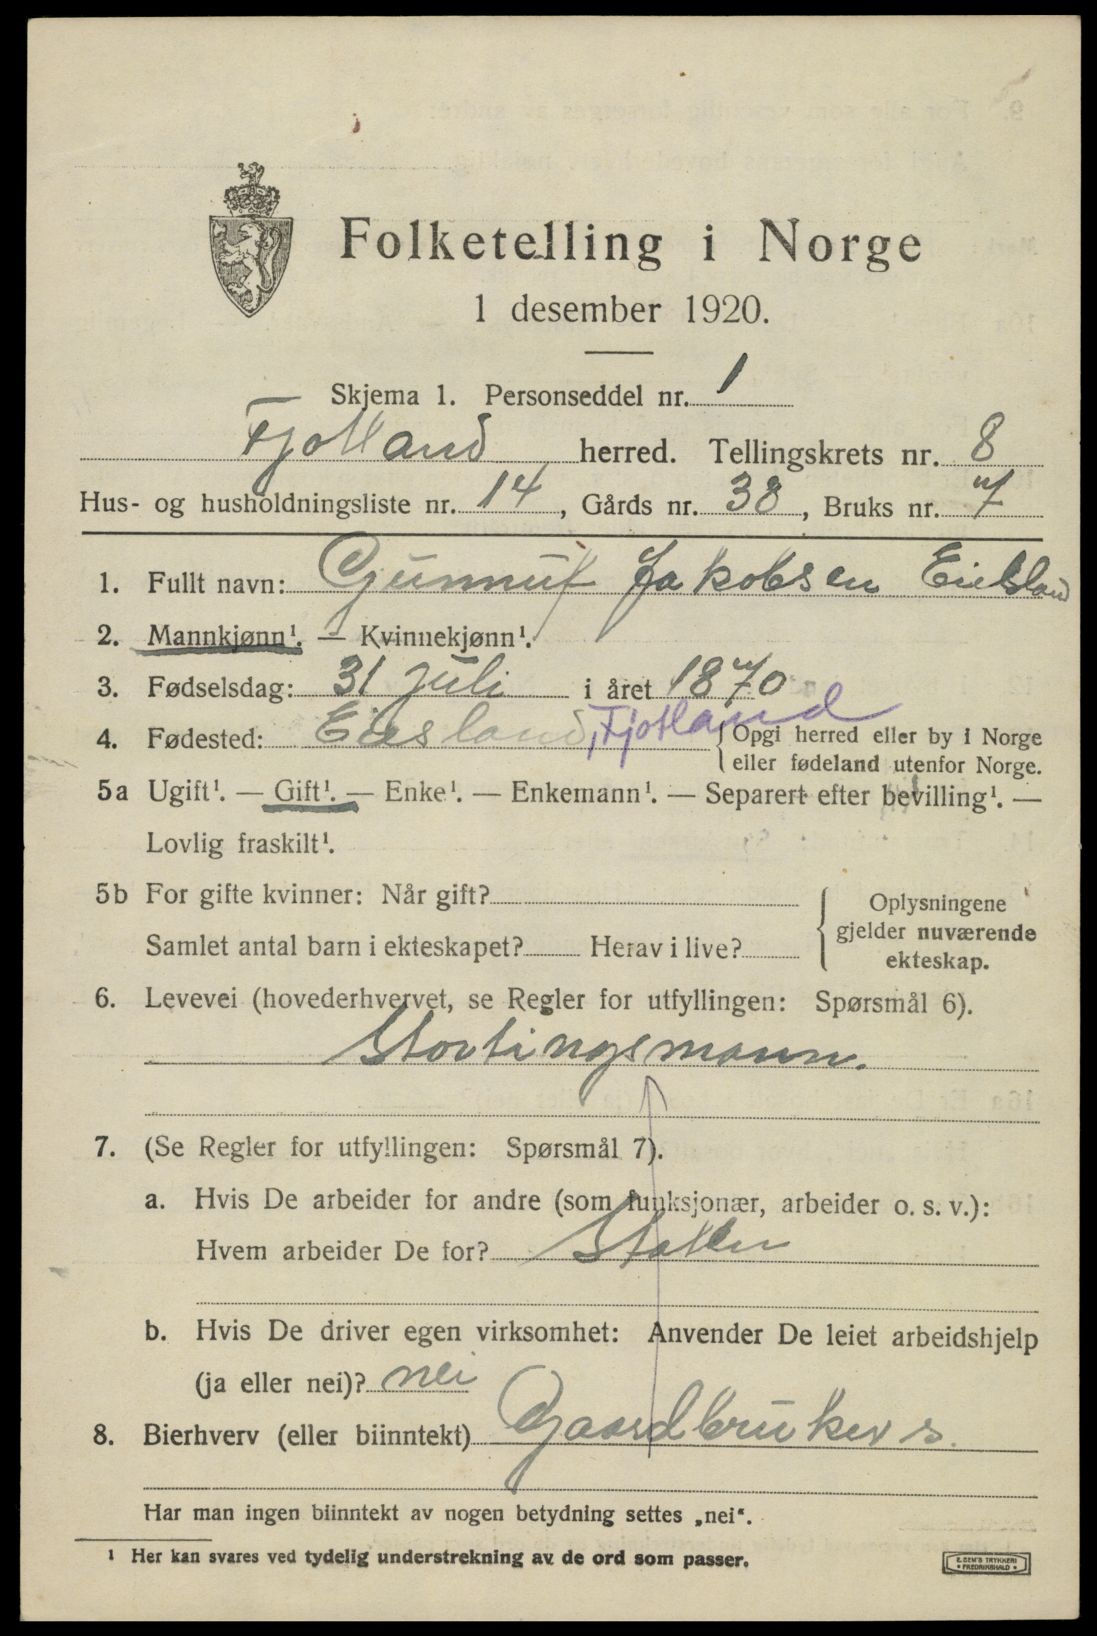 Folketelling i Norge
1 desember 1920.
Skjema 1. Personseddel nr. 1
Fjotland herred. Tellingskrets nr. 8
Hus- og husholdningsliste nr. 14, Gårds nr. 38, Bruks nr. 7
1. Fullt navn: Gunnuf Jakobsen Eiesland
2. Mannkjønn¹. — Kvinnekjønn¹.
3. Fødselsdag: 31 juli i året 1870
4. Fødested: Eiesland, Fjotland { Opgi herred eller by i Norge
eller fødeland utenfor Norge.
5a Ugift¹. — Gift¹. — Enke¹. — Enkemann¹. — Separert efter bevilling¹. —
Lovlig fraskilt¹.
5b For gifte kvinner: Når gift?
Samlet antal barn i ekteskapet? Herav i live?
{ Oplysningene
gjelder nuværende
ekteskap.
6. Levevei (hovederhvervet, se Regler for utfyllingen: Spørsmål 6).
Stortingsmann.
7. (Se Regler for utfyllingen: Spørsmål 7).
a. Hvis De arbeider for andre (som funksjonær, arbeider o. s. v.):
Hvem arbeider De for? Staten
b. Hvis De driver egen virksomhet: Anvender De leiet arbeidshjelp
(ja eller nei)? nei
8. Bierhverv (eller biinntekt) Gaardbruker s.
Har man ingen biinntekt av nogen betydning settes „nei“.
¹ Her kan svares ved tydelig understrekning av de ord som passer.
E. SEM'S TRYKKERI
• FREDRIKSHALD •